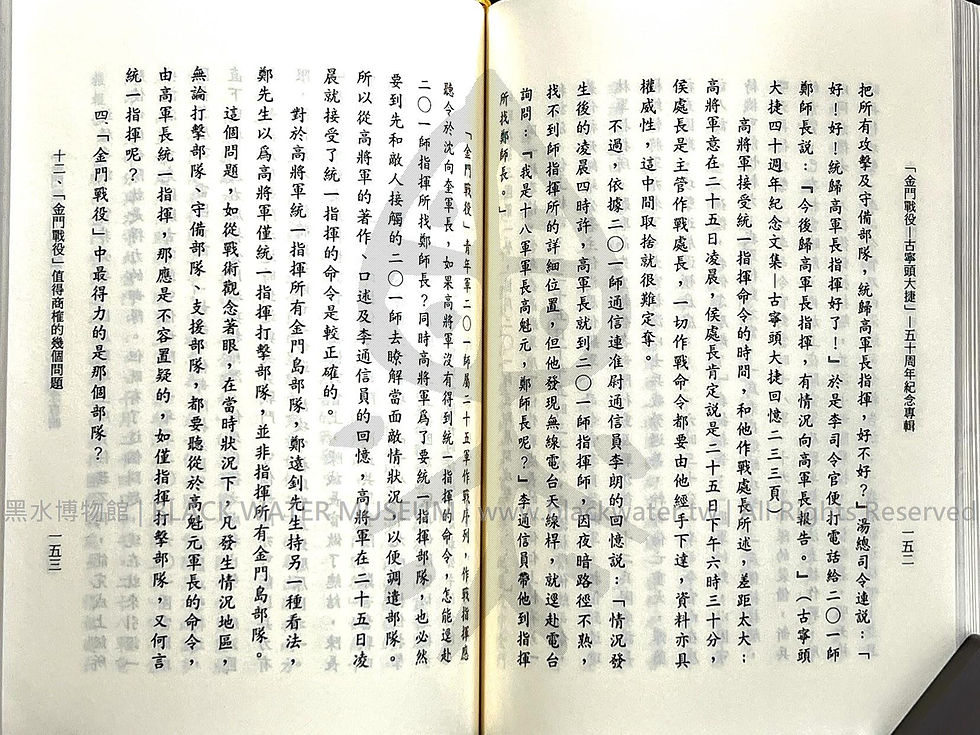 「金門戰役—古寧頭大捷」—五十周年紀念專輯
一五二
把所有攻擊及守備部隊，統歸高軍長指揮，好不好？」湯總司令連說：「
好！好！統歸高軍長指揮好了！」於是李司令官便打電話給二〇一師
鄭師長說：「今後歸高軍長指揮，有情況向高軍長報告。」（古寧頭
大捷四十週年紀念文集—古寧頭大捷回憶二三三頁）
高將軍接受統一指揮命令的時間，和他作戰處長所述，差距太大：
高將軍意在二十五日凌晨，侯處長肯定說是二十五日下午六時三十分，
侯處長是主管作戰處長，一切作戰命令都要由他經手下達，資料亦具
權威性，這中間取捨就很難定奪。
不過，依據二〇一師通信連准尉通信員李朗的回憶說：「情況發
生後的凌晨四時許，高軍長就到二〇一師指揮師，因夜暗路徑不熟，
找不到師指揮所的詳細位置，但他發現無線電台天線桿，就逕赴電台
詢問：「我是十八軍軍長高魁元，鄭師長呢？」李通信員帶他到指揮
所找鄭師長。」
「金門戰役」青年軍二〇一師屬二十五軍作戰序列，作戰指揮應
聽令於沈向奎軍長，如果高將軍沒有得到統一指揮的命令，怎能逕赴
二〇一師指揮所找鄭師長？同時高將軍為了要統一指揮部隊，也必然
要到先和敵人接觸的二〇一師去瞭解當面敵情狀況，以便調遣部隊。
所以從高將軍的著作、口述及李通信員的回憶，高將軍在二十五日凌
晨就接受了統一指揮的命令是較正確的。
對於高將軍統一指揮所有金門島部隊，鄭遠釗先生持另一種看法，
鄭先生以為高將軍僅統一指揮打擊部隊，並非指揮所有金門島部隊。
這個問題，如從戰術觀念著眼，在當時狀況下，凡發生情況地區，
無論打擊部隊、守備部隊、支援部隊，都要聽從於高魁元軍長的命令，
由高軍長統一指揮，那應是不容置疑的，如僅指揮打擊部隊，又何言
統一指揮呢？
四、「金門戰役」中最得力的是那個部隊？
十二、「金門戰役」值得商榷的幾個問題
一五三
黑水博物館 | BLACK WATER MUSEUM | www.blackwater.tw | All Rights Reserved